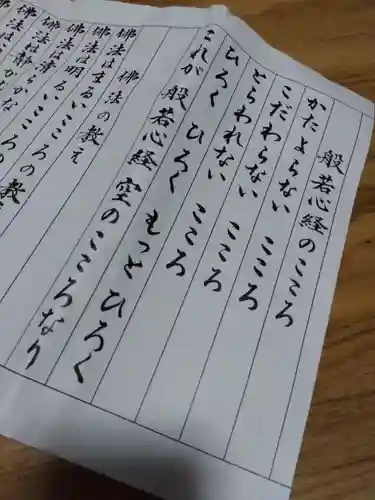 般若心経のこころ
かたよらない こころ
こだわらない こころ
とらわれない こころ
ひろく ひろく もっと ひろく
これが 般若心経 空のこころなり
佛法の教え
佛法はまるいこころの教え
佛法は明るいこころの
佛法は清らかな
佛法は静かな
佛法は